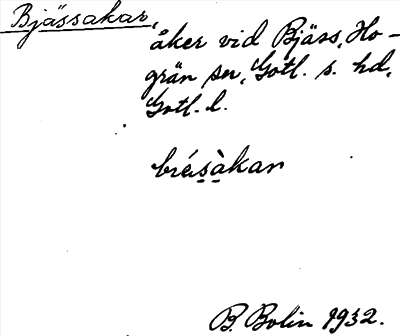 Bjässakar,
åker vid Bjärs, Ho-
grän sn, Gotl. s. hd,
Gotl. l.
bréisàkar
B. Bolin 1932.